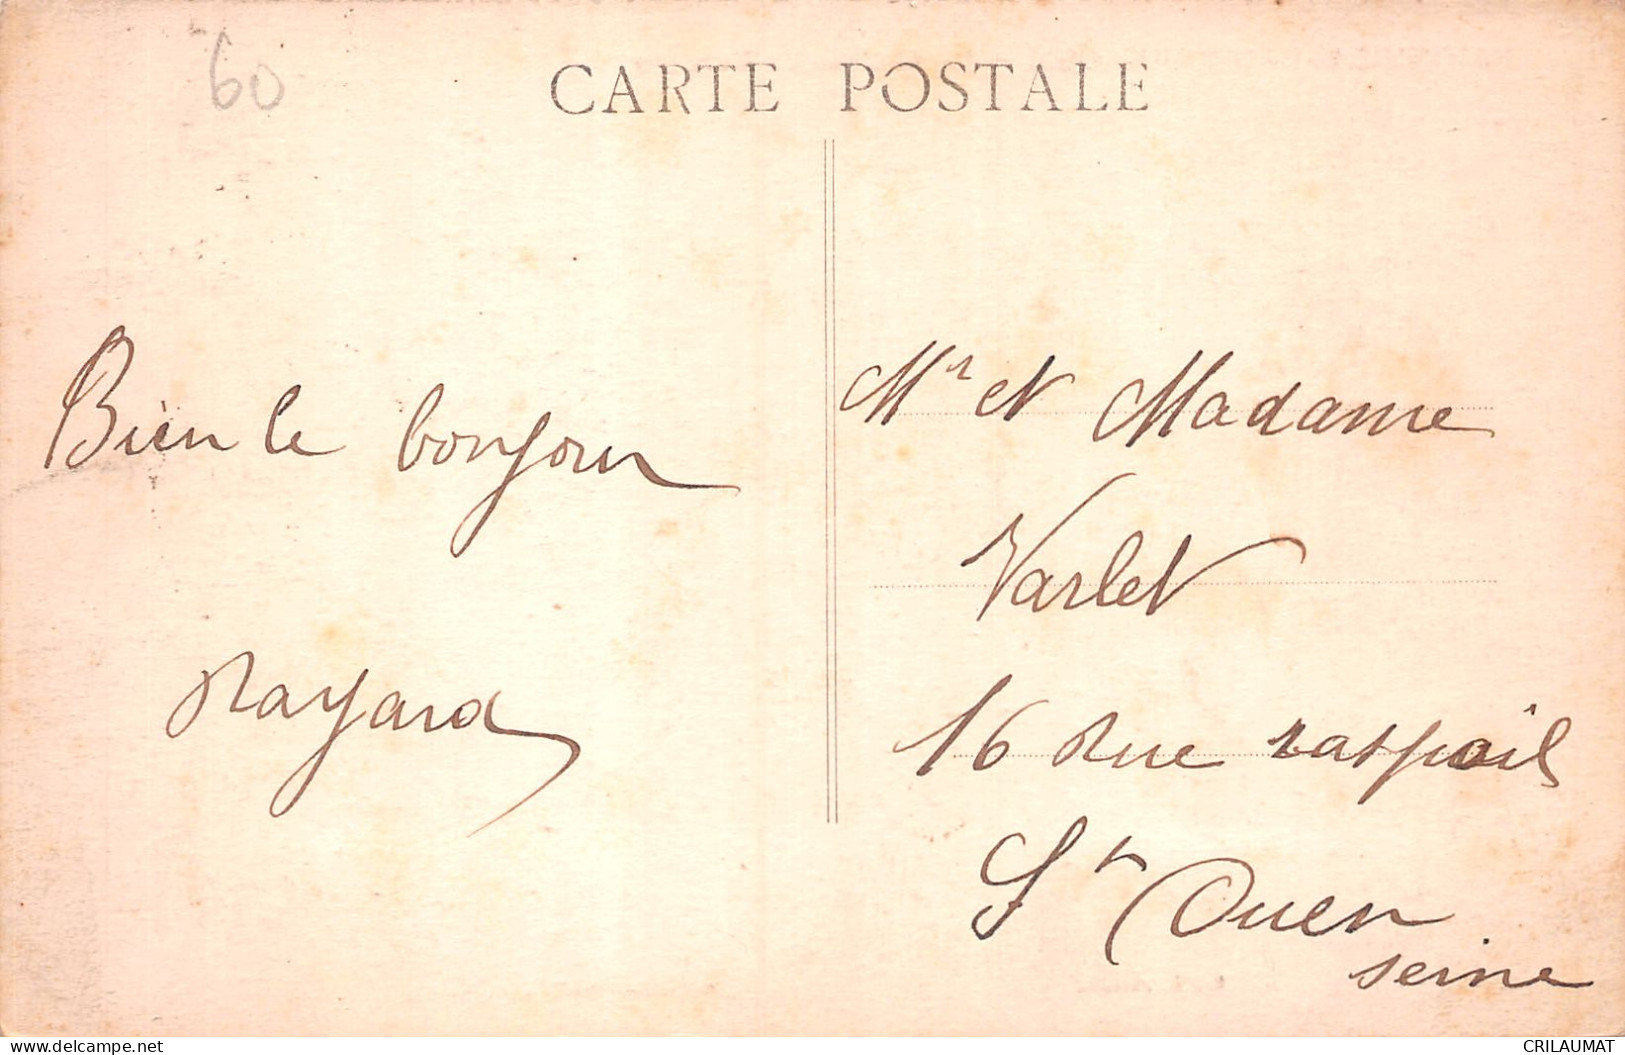 60
CARTE POSTALE
Bien le bonjour
Nayard
Mr et Madame
Varlet
16 Rue raspail
St Ouen
seine
www.delcampe.net
CRILAUMAT